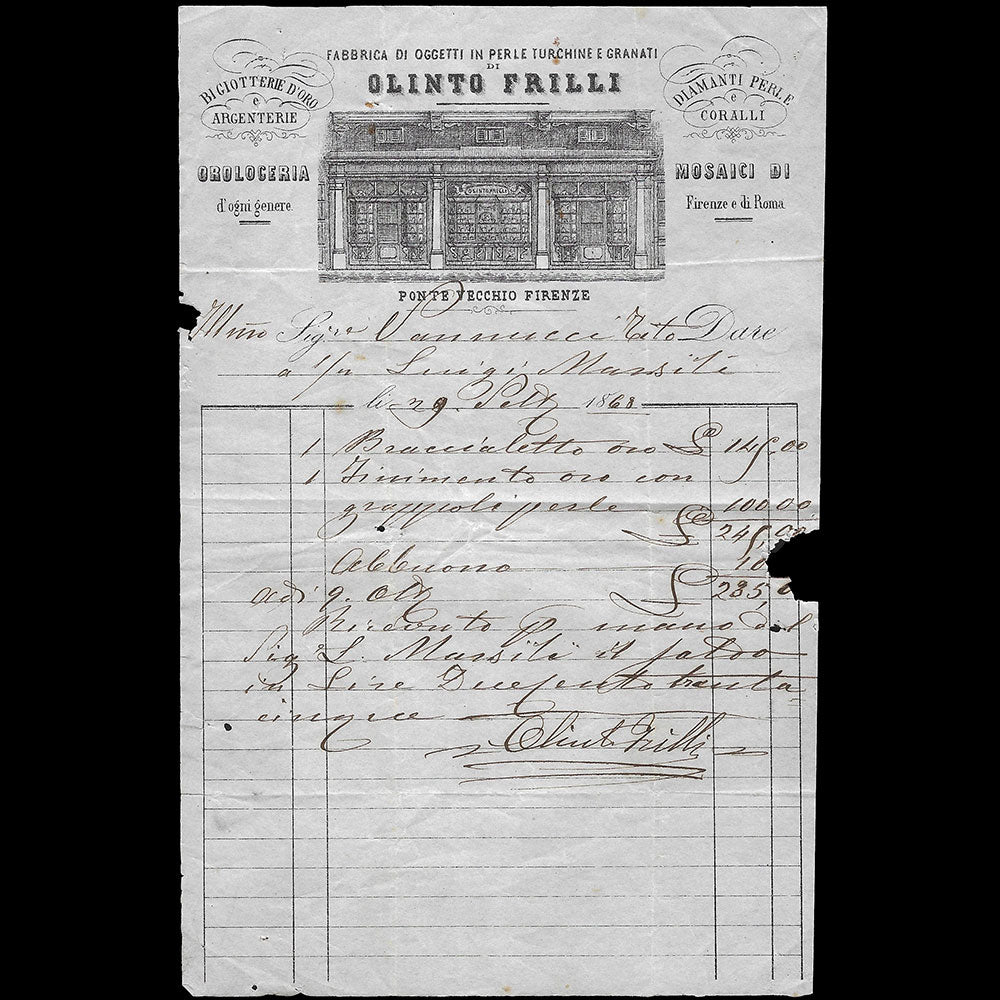 FABBRICA DI OGGETTI IN PERLE TURCHINE E GRANATI
DI
OLINTO FRILLI
BIGIOTTERIE D'ORO
e
ARGENTERIE
OROLOGERIA
d'ogni genere.
DIAMANTI PERLE
e
CORALLI
MOSAICI DI
Firenze e di Roma
OLINTO FRILLI
PONTE VECCHIO FIRENZE
Illmo Sigre Vannucci Dare
a Luigi Marsili
li 29. Sett 1868
1 Braccialetto oro £ 145,00
1 Finimento oro con
grappoli perle 100,00
£ 245,00
Abbuono 10
adi 9. Ott £ 235,0
Ricevuto p mano del
Sigr L. Marsili il saldo
in Lire Duecento trenta
cinque
Olinto Frilli